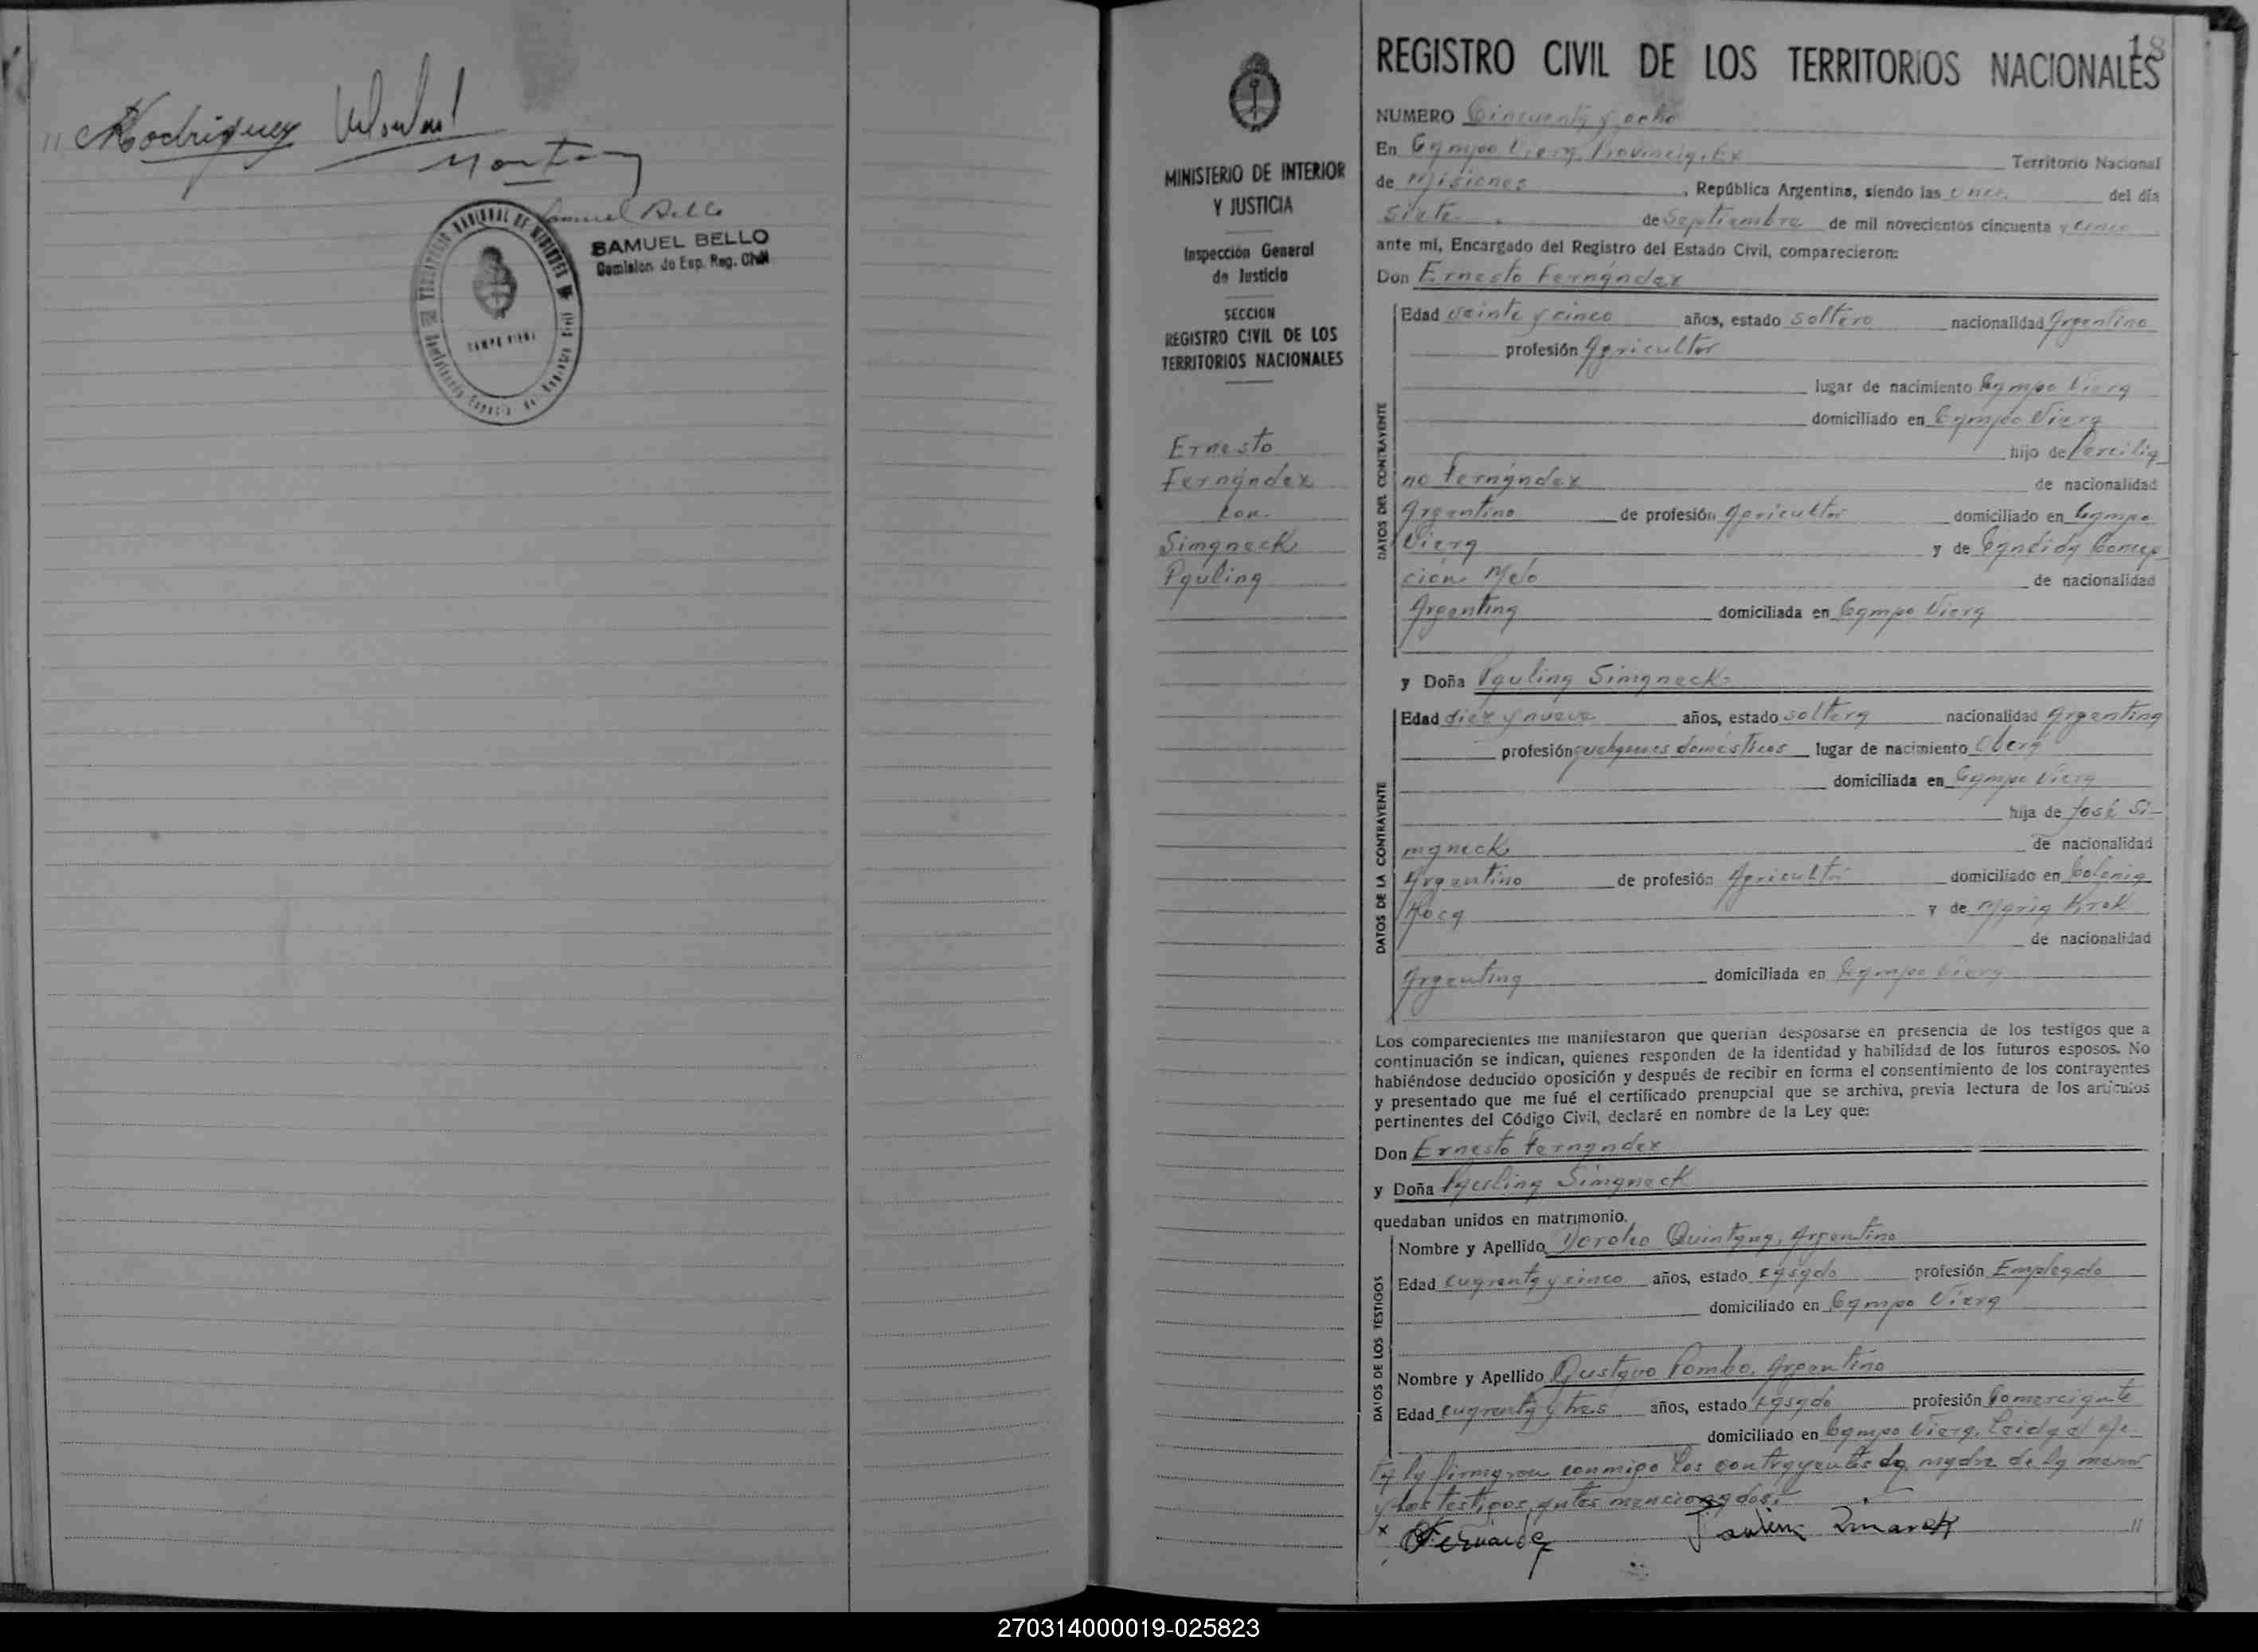 Rodriguez
SAMUEL BELLO
Comision. do Esp. Reg. Civil
CAMPO VIERA
18
REGISTRO CIVIL DE LOS TERRITORIOS NACIONALES
MINISTERIO DE INTERIOR
Y JUSTICIA
Inspección General
de Justicia
SECCION
REGISTRO CIVIL DE LOS
TERRITORIOS NACIONALES
Ernesto
Fernández
con
Simaneck
Paulina
NUMERO Cincuenta y ocho
En Campo Viera, Provincia, Ex Territorio Nacional
de Misiones, República Argentina, siendo las once del día
siete de Septiembre de mil novecientos cincuenta y cinco
ante mí, Encargado del Registro del Estado Civil, comparecieron:
Don Ernesto Fernández
DATOS DEL CONTRAYENTE
Edad veinte y cinco años, estado soltero nacionalidad Argentino
profesión Agricultor
lugar de nacimiento Campo Viera
domiciliado en Campo Viera
hijo de Percilia
no Fernández de nacionalidad
Argentino de profesión Agricultor domiciliado en Campo
Viera y de Candida Concep
cion Melo de nacionalidad
Argentina domiciliada en Campo Viera
y Doña Paulina Simaneck
DATOS DE LA CONTRAYENTE
Edad diez y nueve años, estado soltera nacionalidad Argentina
profesión quehaceres domésticos lugar de nacimiento Oberá
domiciliada en Campo Viera
hija de José Si-
maneck de nacionalidad
Argentino de profesión Agricultor domiciliado en Colonia
Roca y de María Krok
de nacionalidad
Argentina domiciliada en Campo Viera
Los comparecientes me manifestaron que querían desposarse en presencia de los testigos que a
continuación se indican, quienes responden de la identidad y habilidad de los futuros esposos. No
habiéndose deducido oposición y después de recibir en forma el consentimiento de los contrayentes
y presentado que me fué el certificado prenupcial que se archiva, previa lectura de los artículos
pertinentes del Código Civil, declaré en nombre de la Ley que:
Don Ernesto Fernández
y Doña Paulina Simaneck
quedaban unidos en matrimonio.
DATOS DE LOS TESTIGOS
Nombre y Apellido Doroteo Quintana, Argentino
Edad cuarenta y cinco años, estado casado profesión Empleado
domiciliado en Campo Viera
Nombre y Apellido Gustavo Pombo, Argentino
Edad cuarenta y tres años, estado casado profesión Comerciante
domiciliado en Campo Viera. Leida el ac
ta la firmaron conmigo los contrayentes la madre de la menor
y los testigos antes mencionados.
x Fernandez Paulina Simaneck //
270314000019-025823